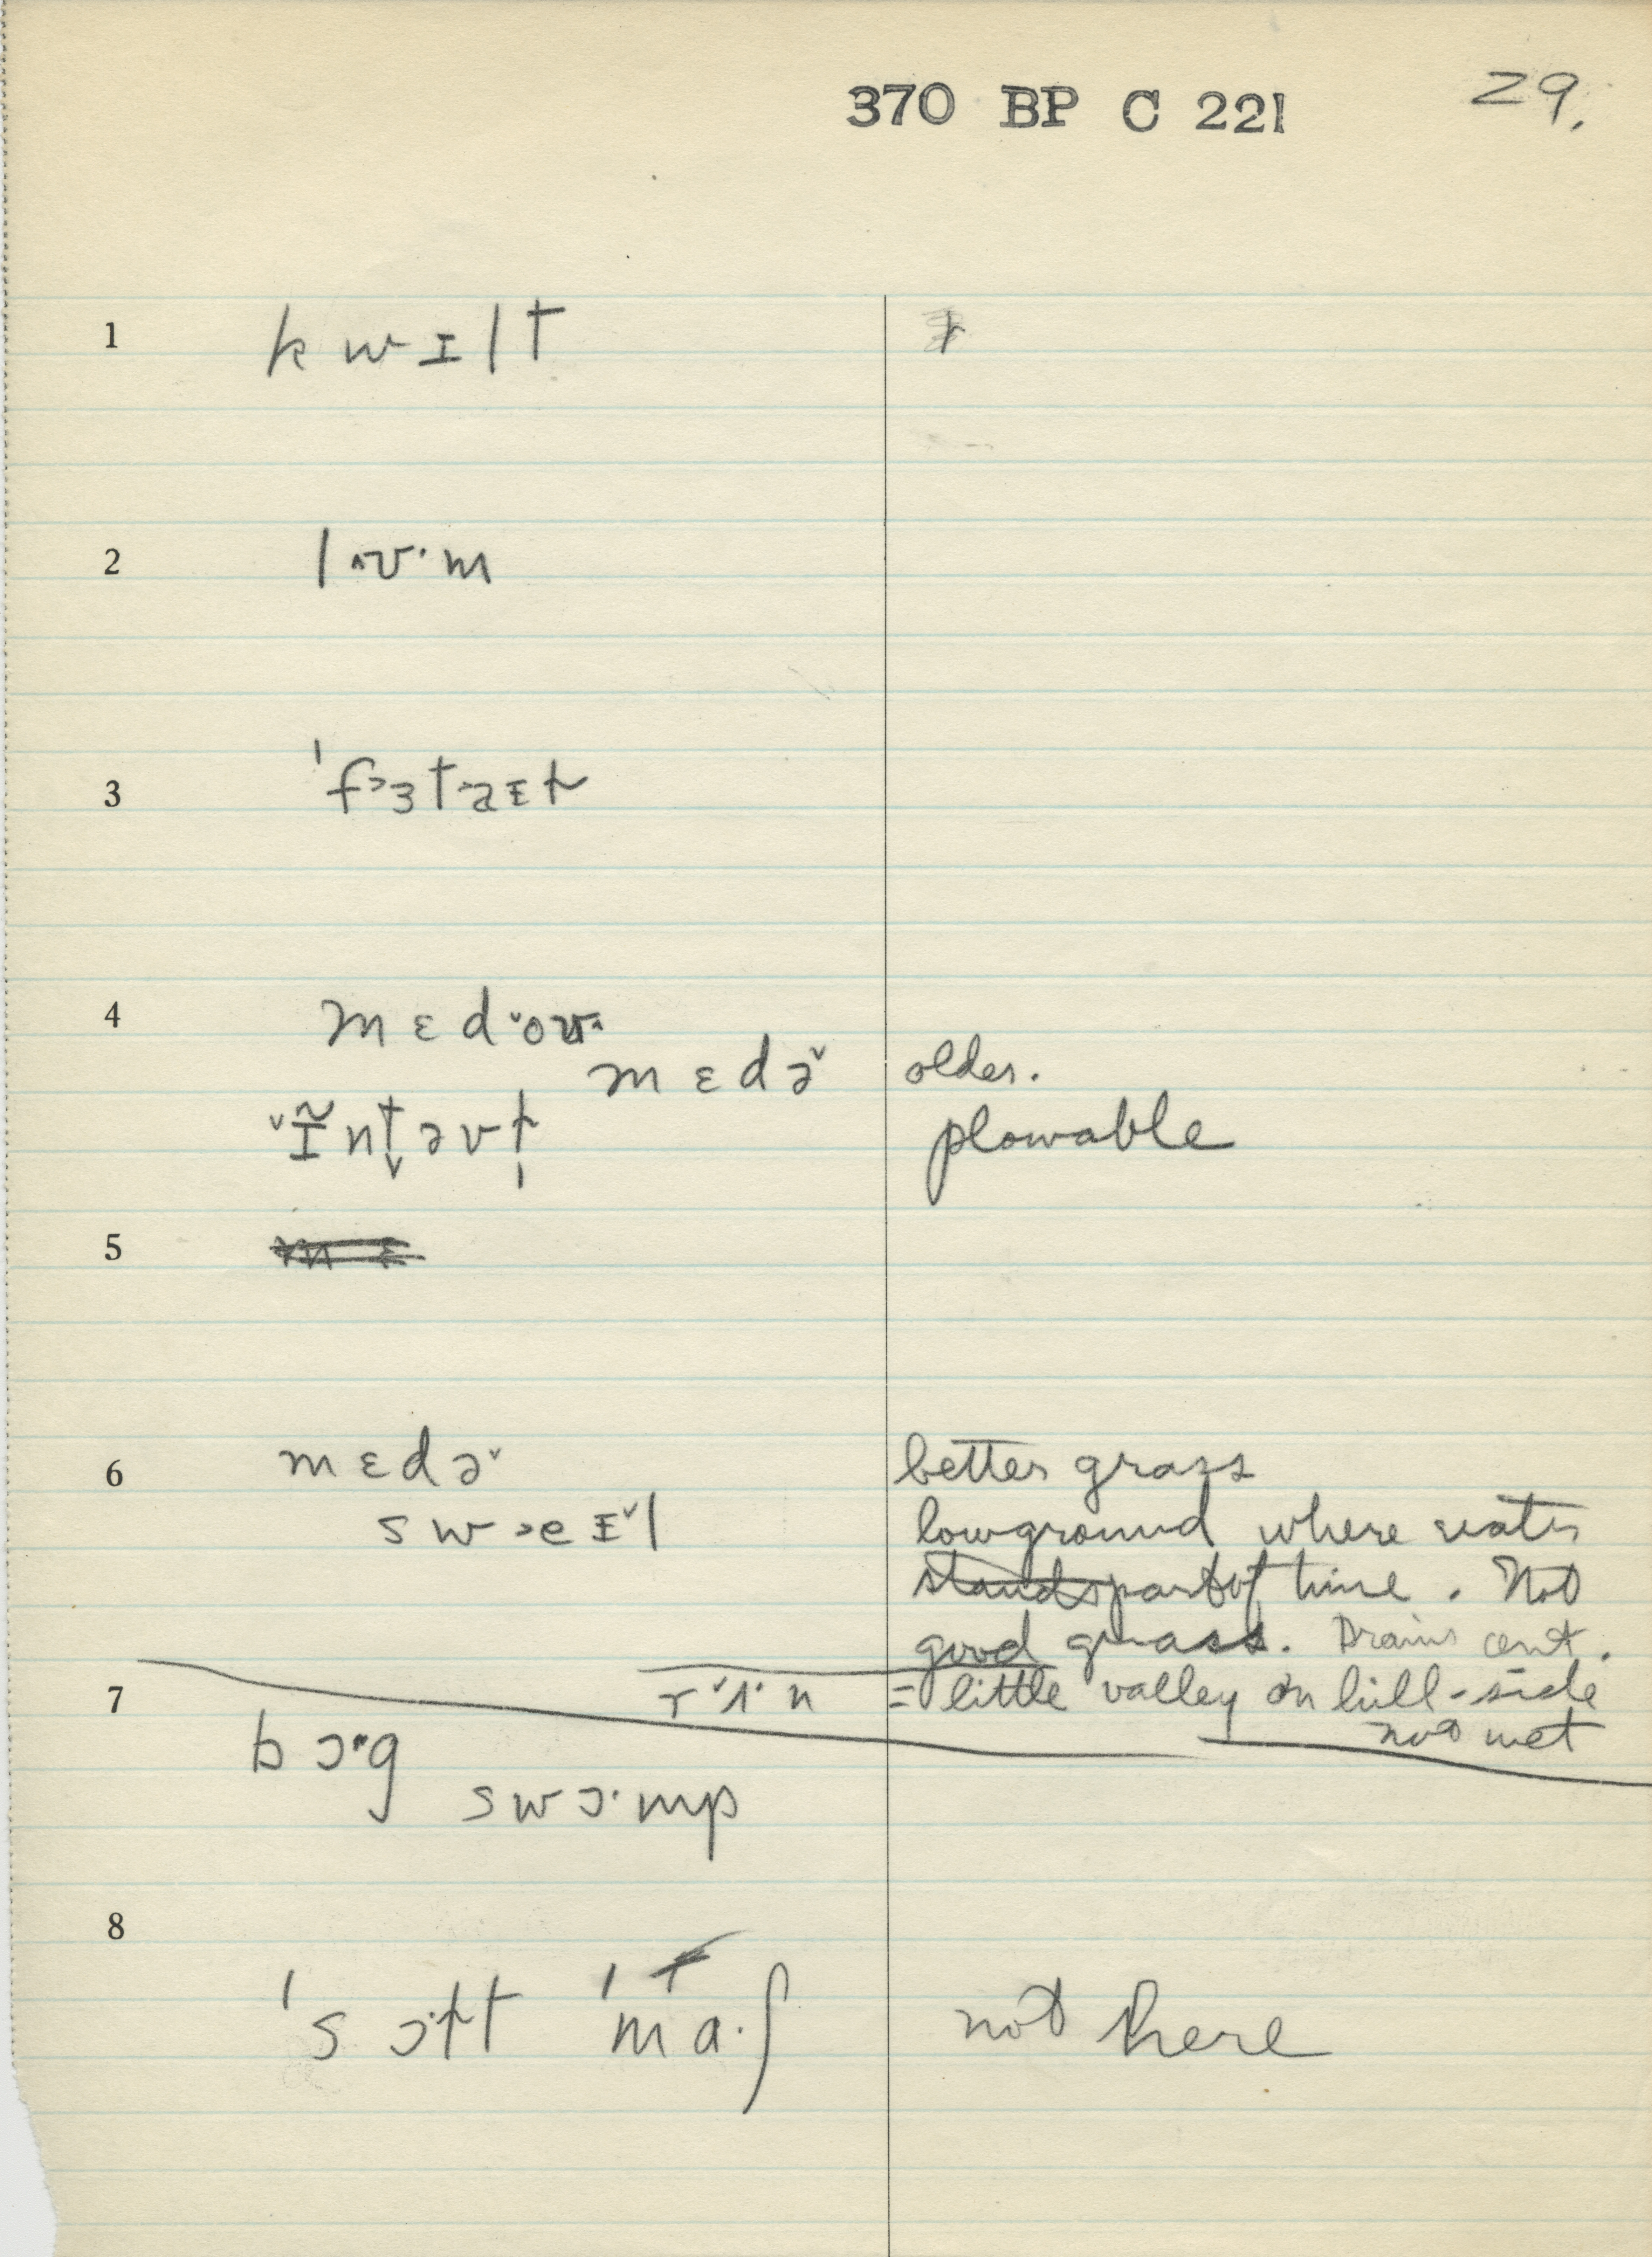 370 BP C 221 29.
1 k w ɪ l t
2 l ʌ ʊ · m
3 ˈf ɜ t ə ɪ ɾ
4 m ɛ d ˇo ʊ
m ɛ d ə ˇ older.
ˇɪ̃ n t̬ ə v ɫ plowable
5
6 m ɛ d ə ˇ better grass
s w e ɪ ˇ l low ground where water
stands part of time. Not
good grass. Drains out.
7 r ˇʌ · n = little valley on hill-side
not wet
b ɔ · g
s w ɔ · m p
8
ˈs ɔ ɫ t ˈm a · ʃ not here